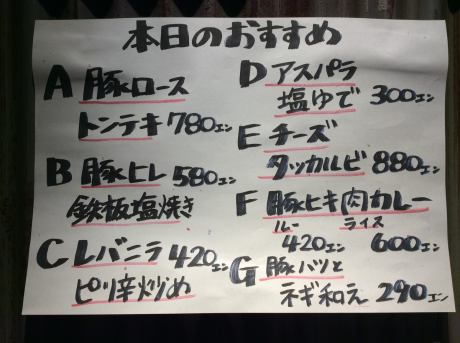 本日のおすすめ
A 豚ロース
トンテキ 780エン
B 豚ヒレ 580エン
鉄板塩焼き
C レバニラ 420エン
ピリ辛炒め
D アスパラ
塩ゆで 300エン
E チーズ
タッカルビ 880エン
F 豚ヒキ肉カレー
ルー ライス
420エン 600エン
G 豚ハツと
ネギ和え 290エン